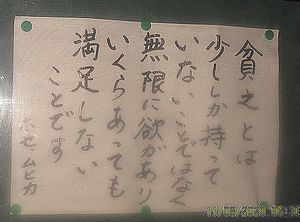 貧乏とは
少ししか持って
いないことではなく
無限に欲があり
いくらあっても
満足しない
ことです
ホセ.ムヒカ